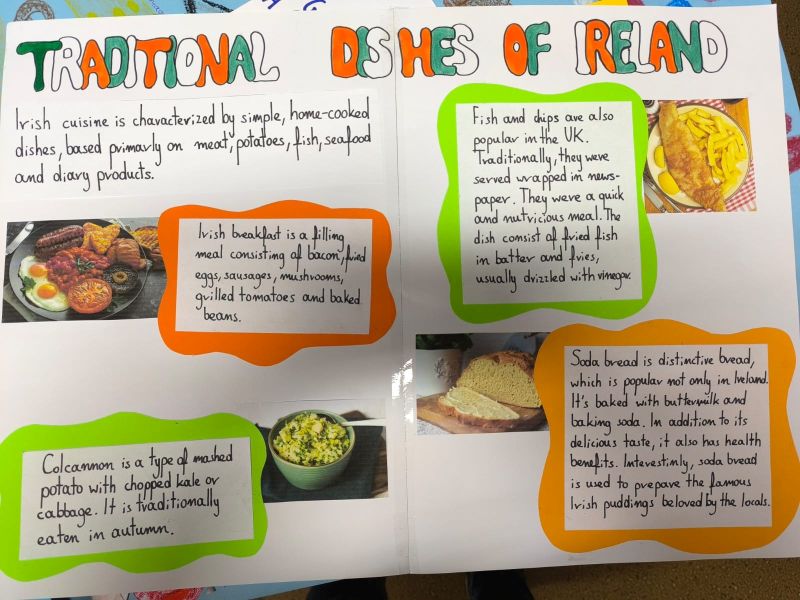 TRADITIONAL DISHES OF IRELAND
Irish cuisine is characterized by simple, home-cooked
dishes, based primarly on meat, potatoes, fish, seafood
and diary products.
Irish breakfast is a filling
meal consisting of bacon, fried
eggs, sausages, mushrooms,
grilled tomatoes and baked
beans.
Colcannon is a type of mashed
potato with chopped kale or
cabbage. It is traditionally
eaten in autumn.
Fish and chips are also
popular in the UK.
Traditionally, they were
served wrapped in news-
paper. They were a quick
and nutricious meal. The
dish consist of fried fish
in batter and fries,
usually drizzled with vinegar.
Soda bread is distinctive bread,
which is popular not only in Ireland.
It's baked with buttermilk and
baking soda. In addition to its
delicious taste, it also has health
benefits. Interestinly, soda bread
is used to prepare the famous
Irish puddings beloved by the locals.